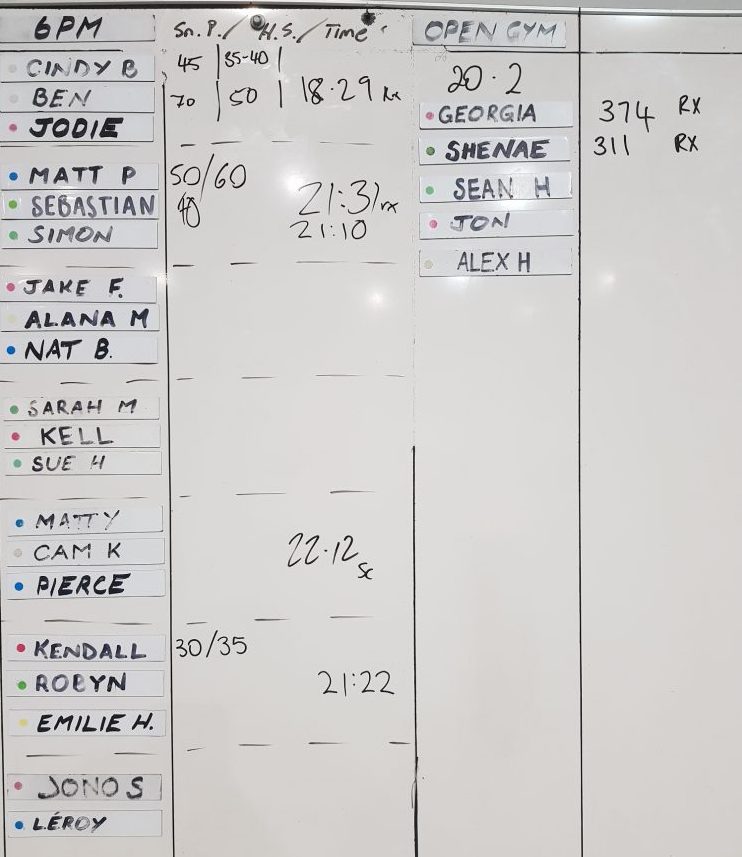 6PM
Sn. P. / H.S. / Time
CINDY B 45 | 35-40 |
BEN 70 | 50 | 18·29 Rx
JODIE
MATT P 50/60
SEBASTIAN 40 21:31 rx
SIMON 21:10
JAKE F.
ALANA M
NAT B.
SARAH M
KELL
SUE H
MATTY
CAM K 22·12 Sc
PIERCE
KENDALL 30/35
ROBYN 21:22
EMILIE H.
JONO S
LÉROY
OPEN GYM
20·2
GEORGIA 374 RX
SHENAE 311 RX
SEAN H
JON
ALEX H